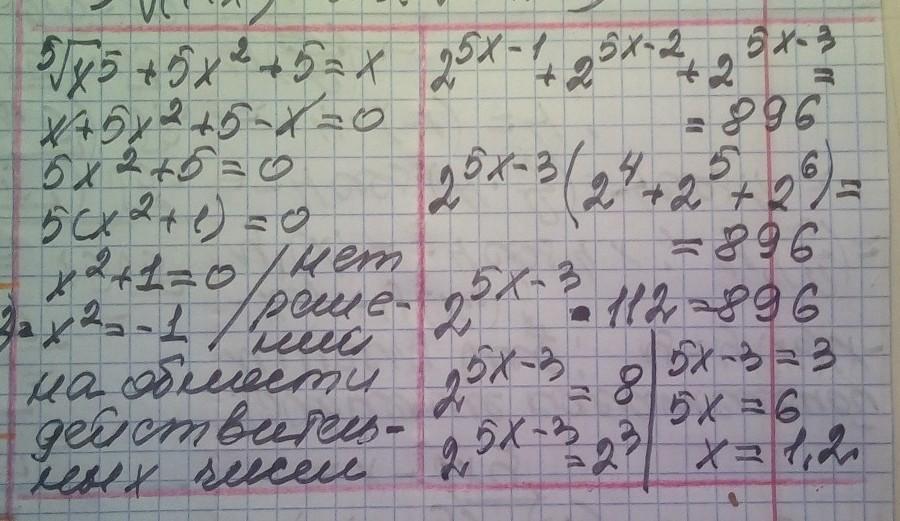 ⁵√x⁵ + 5x² + 5 = x
x + 5x² + 5 - x = 0
5x² + 5 = 0
5(x² + 1) = 0
x² + 1 = 0 / нет
x² = -1 / реше-
ний
на области
действитель-
ных чисел
2^(5x-1) + 2^(5x-2) + 2^(5x-3) =
= 896
2^(5x-3) (2⁴ + 2⁵ + 2⁶) =
= 896
2^(5x-3) · 112 = 896
2^(5x-3) = 8
2^(5x-3) = 2³
5x - 3 = 3
5x = 6
x = 1,2.